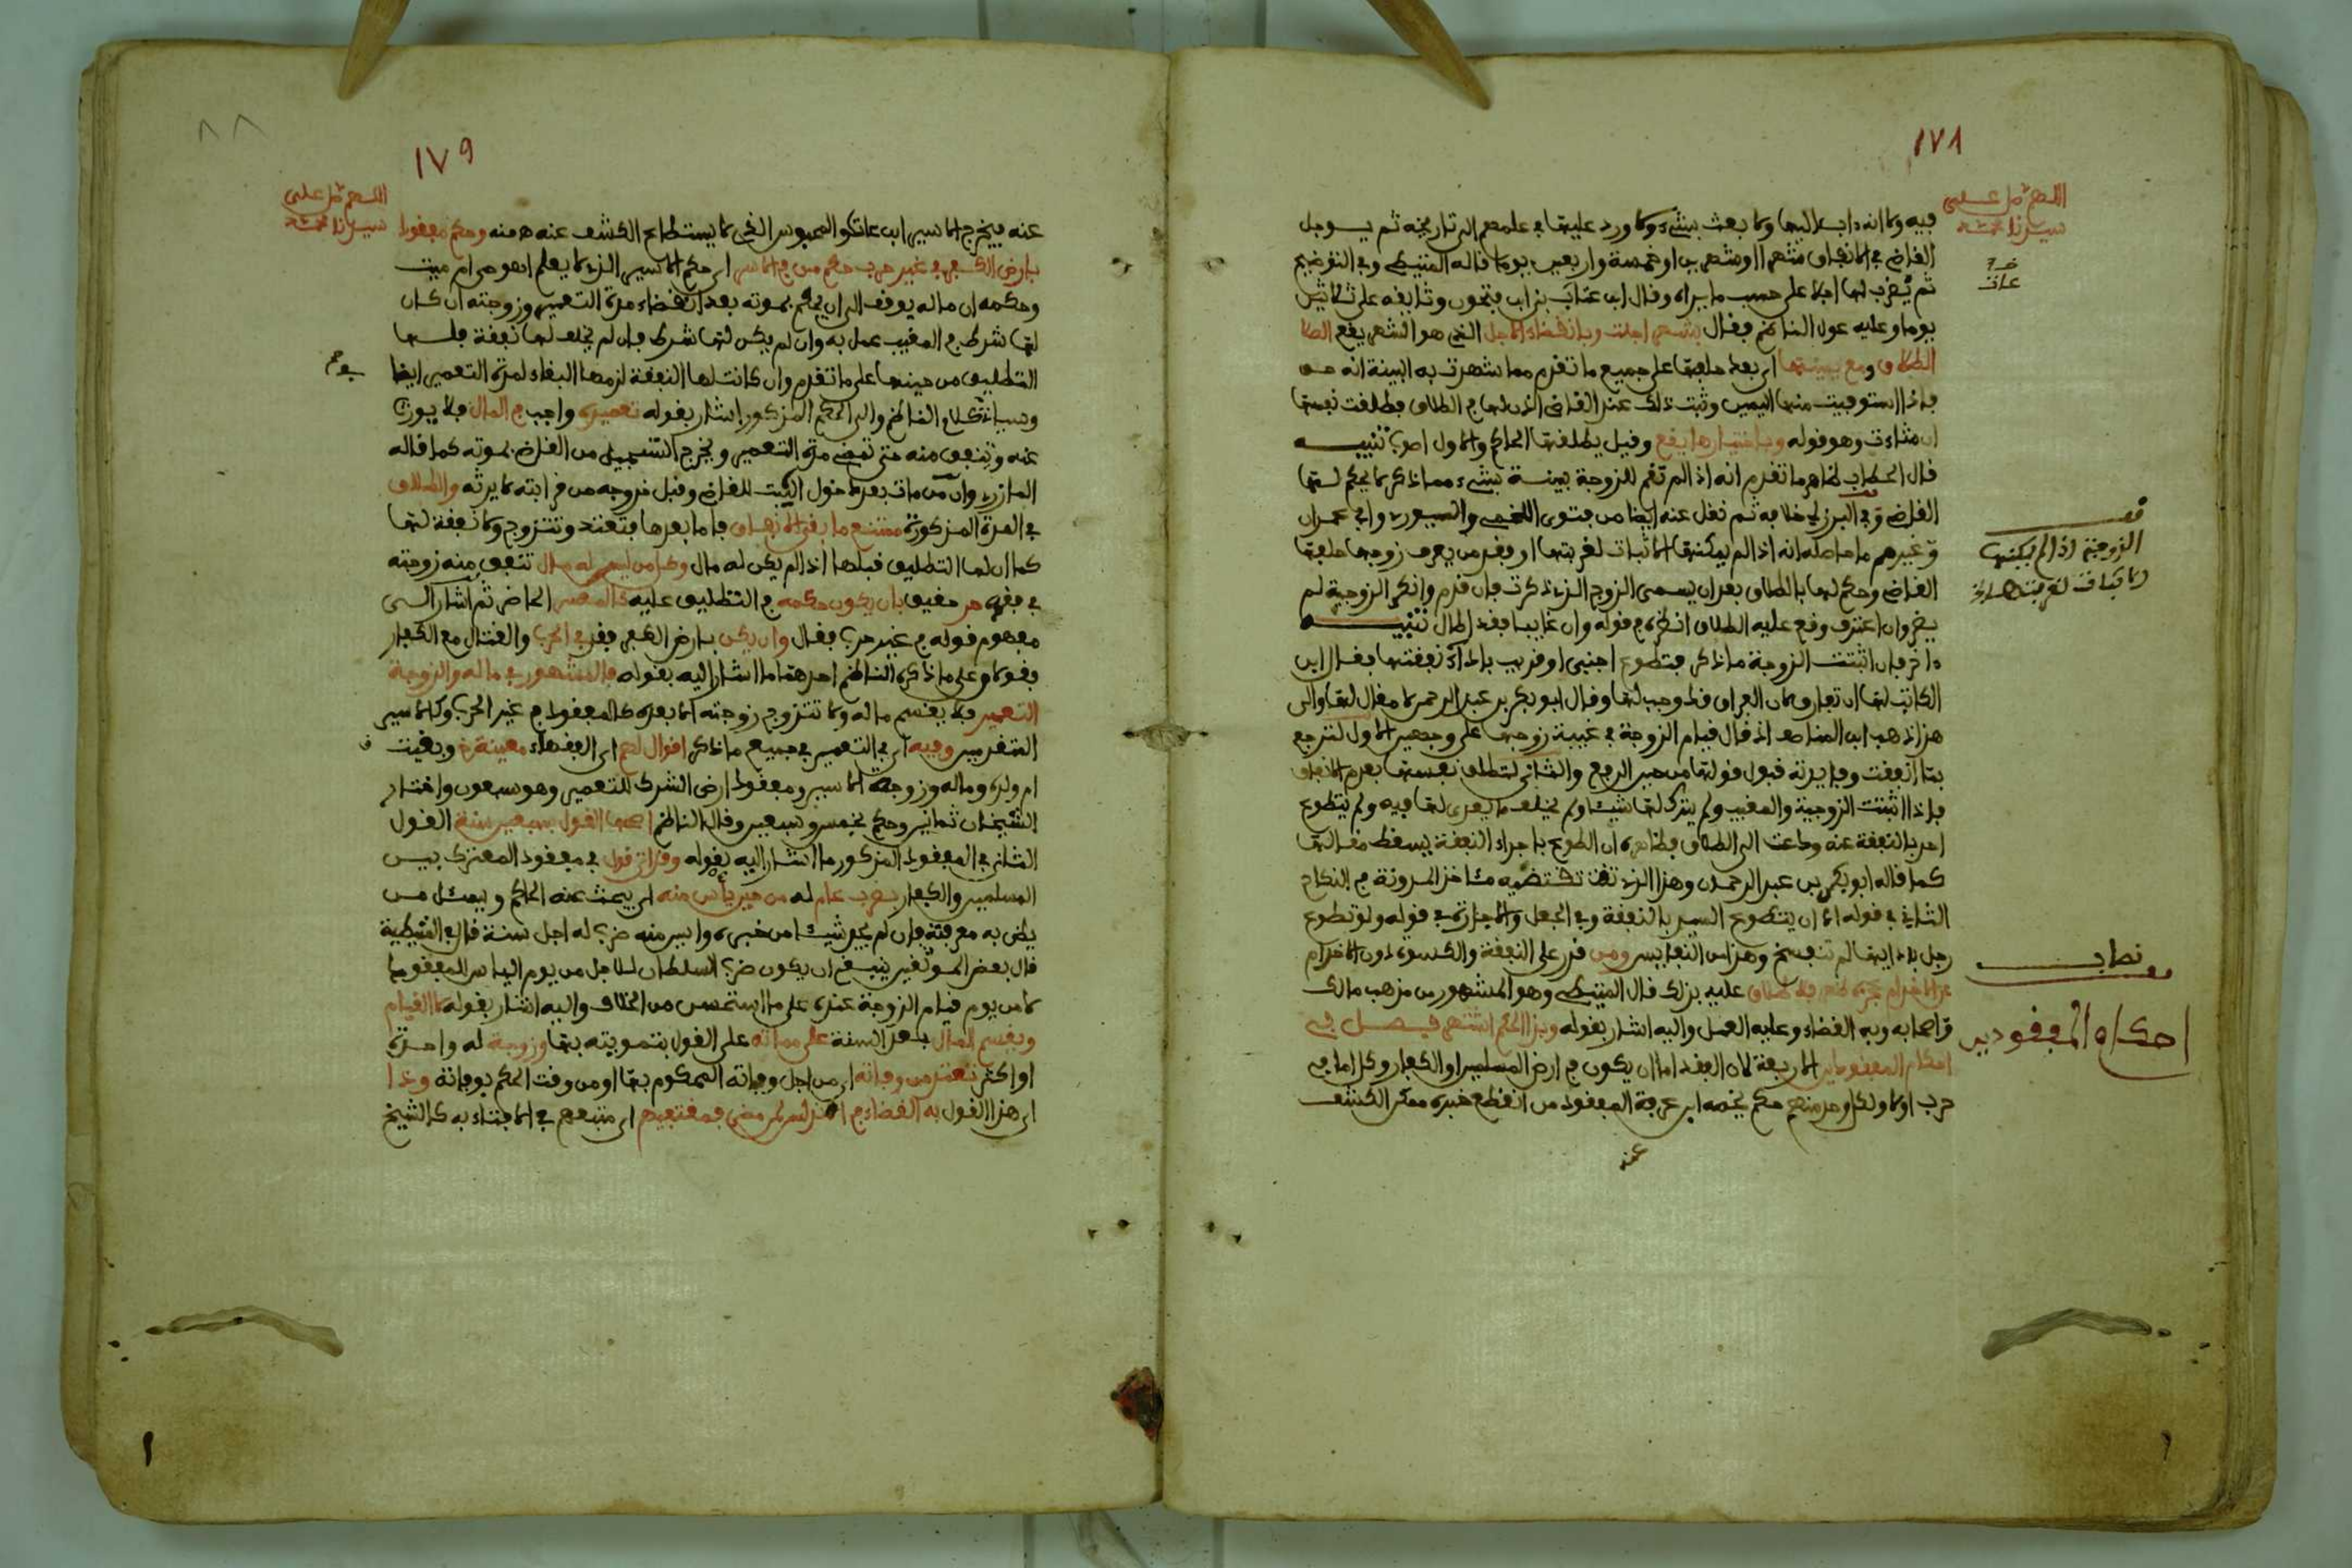 ١٧٨
اللهم صل على
سيدنا محمد
فيه ولا انه داب اليها ولا بعث بشيء ولا ورد عليها في علمهم الى تاريخه ثم يؤجل
القاضي في الانفاق شهرا او شهرين او خمسة واربعين يوما قاله المتيطي وفي التوضيح
ثم يضرب لها اجلا على حسب ما يراه وقال ابن عتاب بن ابن فتحون وثايقه على ثلاثين
يوما وعليه عول الناظم فقال بشهر اجلت وبانقضاء الاجل الذي هو الشهر يقع الطلا
الطلاق ومع يمينها اي بعد حلفها على جميع ما تقدم مما شهدت به البينة انه حق
فاذا استوفيت منها اليمين وثبت ذلك عند القاضي اذن لها في الطلاق فطلقت نفسها
ان شاءت وهو قوله وباختيارها يقع وقيل يطلقها الحاكم والاول اصوب تنبيه
قال الحطاب ظاهر ما تقدم انه اذا لم تقم للزوجة بينة بشيء مما ذكر لا يحكم لها
القاضي وفي البرزلي خلافه ثم نقل عنه ايضا من فتوى اللخمي والسيوري وابي عمران
وغيرهم ما حاصله انه اذا لم يمكنها الاثبات لغربتها او فقد من يعرف زوجها حلفها
القاضي وحكم لها بالطلاق بعد ان يسمى الزوج الذي ذكرت فان قدم وانكر الزوجية لم
يضر وان اعترف وقع عليه الطلاق انظره في قوله وان غايبا فقد اطال تنبيه
ءاخر فان اثبتت الزوجة ما ذكر فتطوع اجنبي او قريب باداء نفقتها فقال ابن
الكاتب لها ان تفارق لان الفراق قد وجب لها وقال ابو بكر بن عبد الرحمن لا مقال لها والى
هذا ذهب ابن المناصف اذ قال قيام الزوجة في غيبة زوجها على وجهين الاول لترجع
بما انفقت وفايدته قبول قولها من حين الرفع والثاني لتطلق نفسها بعدم الانفاق
فاذا اثبتت الزوجية والمغيب ولم يترك لها شيئا ولم يخلف ما يعدى لها فيه ولم يتطوع
احد بالنفقة عنه ودعت الى الطلاق فظاهره ان الطوع باجراء النفقة يسقط مقالها
كما قاله ابو بكر بن عبد الرحمن وهذا الذي تقتضيه مشاخذ المدونة في النكاح
الثاني في قوله الا ان يتطوع السيد بالنفقة وفي الجعل والاجارة في قوله ولو تطوع
رجل بادايها لم تنفسخ وهذا من النفايس ومن قدر على النفقة والكسوة دون الاخدام
عن الاخدام عجزه ظهر فلا طلاق عليه بذلك قال المتيطي وهو المشهور من مذهب مالك
واصحابه وبه القضاء وعليه العمل واليه اشار بقوله وبذا الحكم اشتهر فصل في
احكام المفقودين الاربعة لان الفقد اما ان يكون في ارض المسلمين او الكفار وكل اما في
حرب او لا ولكل واحد منهم حكم يخصه ابن عرفة المفقود من انقطع خبره ممكن الكشف
عنه
قف
الزوجة اذا لم يمكنها
الاثبات لغربتها
نصاب
احكام المفقودين
١٧٩
اللهم صل على
سيدنا محمد
عنه فيخرج الاسير ابن عات والمحبوس الذي لا يستطاع الكشف عنه ه منه وحكم مفقود
بارض الكفر في غير حرب حكم من في الاسر اي حكم الاسير الذي لا يعلم اهو حي ام ميت
وحكمه ان ماله يوقف الى ان يحكم بموته بعد انقضاء مدة التعمير وزوجته ان كان
لها شرط في المغيب عمل به وان لم يكن لها شرط فان لم يخلف لها نفقة فلها
التطليق من حينها على ما تقدم وان كانت لها النفقة لزمها البقاء لمدة التعمير ايضا
وسياتي كلام الناظم والى الحكم المذكور اشار بقوله تعميره واجب في المال فلا يورث
عنه وتنفق منه حتى تمضي مدة التعمير ويخرج التسجيل من القاضي بموته كما قاله
المازري وان من مات بعد دخول البيت للقاضي وقبل خروجه من قرابته لا يرثه والطلاق
في المدة المذكورة ممتنع ما بقي الانفاق فاما بعدها فتعتد وتتزوج ولا نفقة لها
كما ان لها التطليق قبلها اذا لم يكن له مال وكل من ليس له مال تنفق منه زوجته
في فقره حر حقيق بان يكون حكمه في التطليق عليه كالمعسر الحاضر ثم اشار الى
مفهوم قوله في غير حرب فقال وان يكن بارض الكفر فقد في الحرب والقتال مع الكفار
فقولان على ما ذكره الناظم احدهما ما اشار اليه بقوله فالمشهور في ماله والزوجة
التعمير فلا يقسم ماله ولا تتزوج زوجته الا بعده كالمفقود في غير الحرب وكالاسير
المتقدمين وفيه اي في التعمير في جميع ما ذكر اقوال لهم اي الفقهاء معينة وبقيت
ام ولده وماله وزوجة الاسير ومفقود ارض الشرك للتعمير وهو سبعون واختار
الشيخان ثمانين وحكم بخمس وسبعين وقال الناظم اصحها القول بسبعين سنة القول
الثاني في المفقود المذكور ما اشار اليه بقوله وقد اتى قول في مفقود المعترك بين
المسلمين والكفار بضرب عام له من حين يأس منه اي يبحث عنه الحاكم ويسئل من
يظن به معرفته فان لم يجد شيئا من خبره وايس منه ضرب له اجل سنة قال في المتيطية
قال بعض الموثقين ينبغي ان يكون ضرب السلطان للاجل من يوم الياس للمفقود لا
لا من يوم قيام الزوجة عنده على ما استحسن من الخلاف واليه اشار بقوله لا القيام
ويقسم المال بعد السنة على مماته على القول بتمويته بها وزوجة له واحدة
او اكثر تعتد من وفاته اي من اجل وفاته المحكوم بها او من وقت الحكم بوفاته وذا
اي هذا القول به القضاء في اندلس لمن مضى فمقتفيهم اي متبعهم في الافتاء به كالشيخ